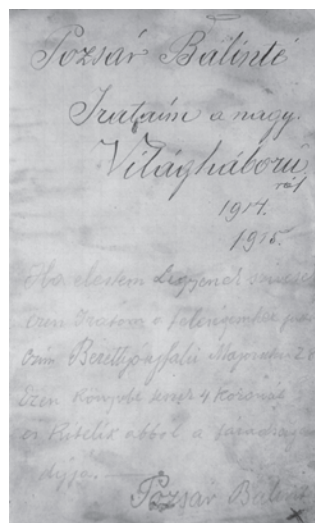 Pozsár Bálinté
Irataim a nagy.
Világháború
ról
1914.
1915.
Ha elestem Legyenek szivesek
ezen Iratom a felengemhez
czim Berettyóujfalu Majoruth
Ezen Könyvbe teszek 4 Koronát
és Kitelik abbol a faradságom
dija.
Pozsár Bálint